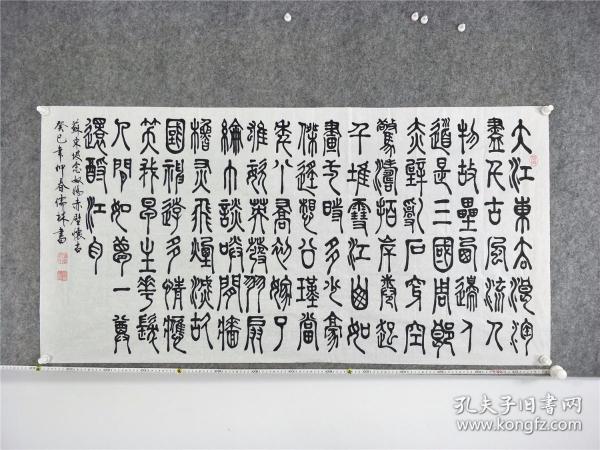 大江東去浪淘
盡千古風流人
物故壘西邊人
道是三國周郎
赤壁亂石穿空
驚濤拍岸卷起
千堆雪江山如
畫一時多少豪
傑遙想公瑾當
年小喬初嫁了
雄姿英發羽扇
綸巾談笑間檣
櫓灰飛煙滅故
國神遊多情應
笑我早生華髮
人間如夢一尊
還酹江月
蘇東坡念奴嬌赤壁懷古
癸巳年仲春儒林書
孔夫子旧书网
www.kongfz.com